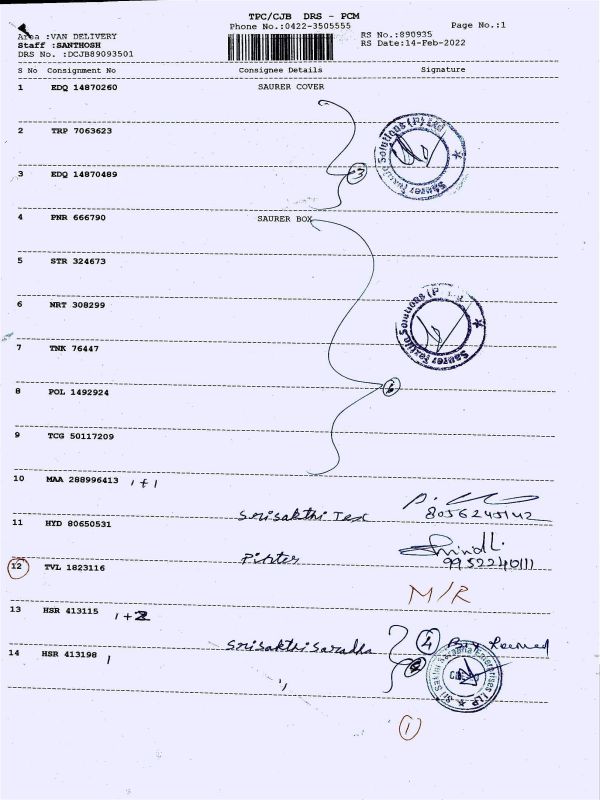 TPC/CJB DRS - PCM
Phone No.:0422-3505555
Page No.:1
Area :VAN DELIVERY
Staff :SANTHOSH
DRS No. :DCJB89093501
RS No.:890935
RS Date:14-Feb-2022
S No Consignment No Consignee Details Signature
1 EDQ 14870260 SAURER COVER
2 TRP 7063623
3 EDQ 14870489
3
Saurer Textile Solutions (P) Ltd
4 PNR 666790 SAURER BOX
5 STR 324673
6 NRT 308299
Saurer Textile Solutions (P
7 TNK 76447
8 POL 1492924
6
9 TCG 50117209
10 MAA 288996413 1+1
Srisakthi Tex 8056245142
11 HYD 80650531
9952240111
12 TVL 1823116
M/R
13 HSR 413115 1+2
Srisakthi Saradha 4 Box
14 HSR 413198 1
Sri Sakthi Saradha Enterprises LLP
1